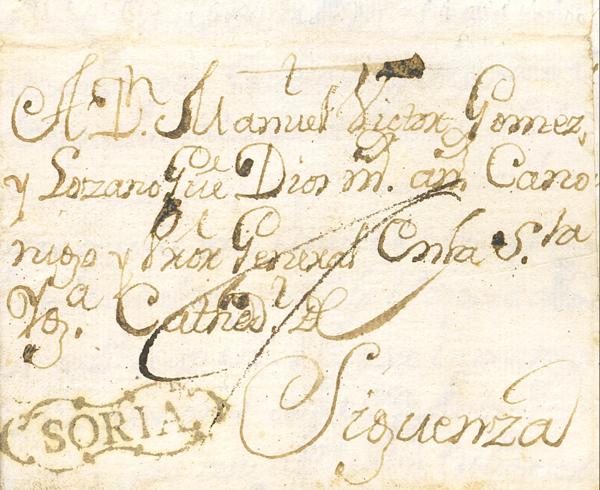 †
A Dn. Manuel Victor Gomez,
y Lozano Gue Dios ms. as. Cano-
nigo y Vror General Enla S.ta
Yg.a Cathed.l de
Siguenza
SORIA